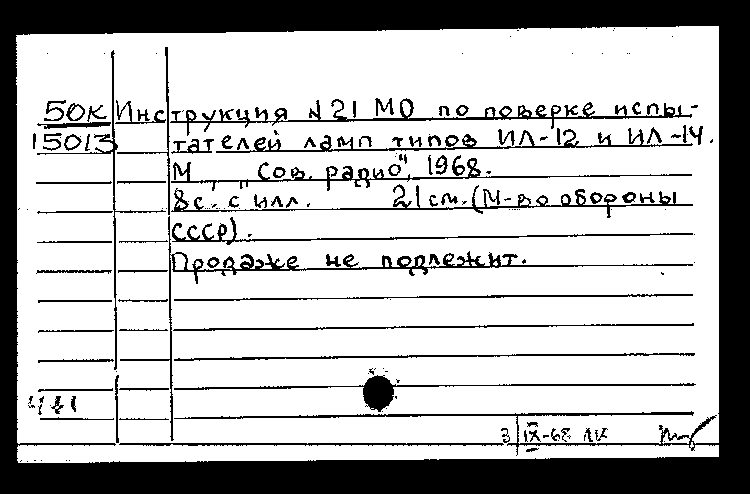 50К Инструкция N 21 МО по поверке испы-
15013 тателей ламп типов ИЛ-12 и ИЛ-14.
М, „Сов. радио", 1968.
8с. с илл. 21см. (М-во обороны
СССР).
Продаже не подлежит.
3/IX-68